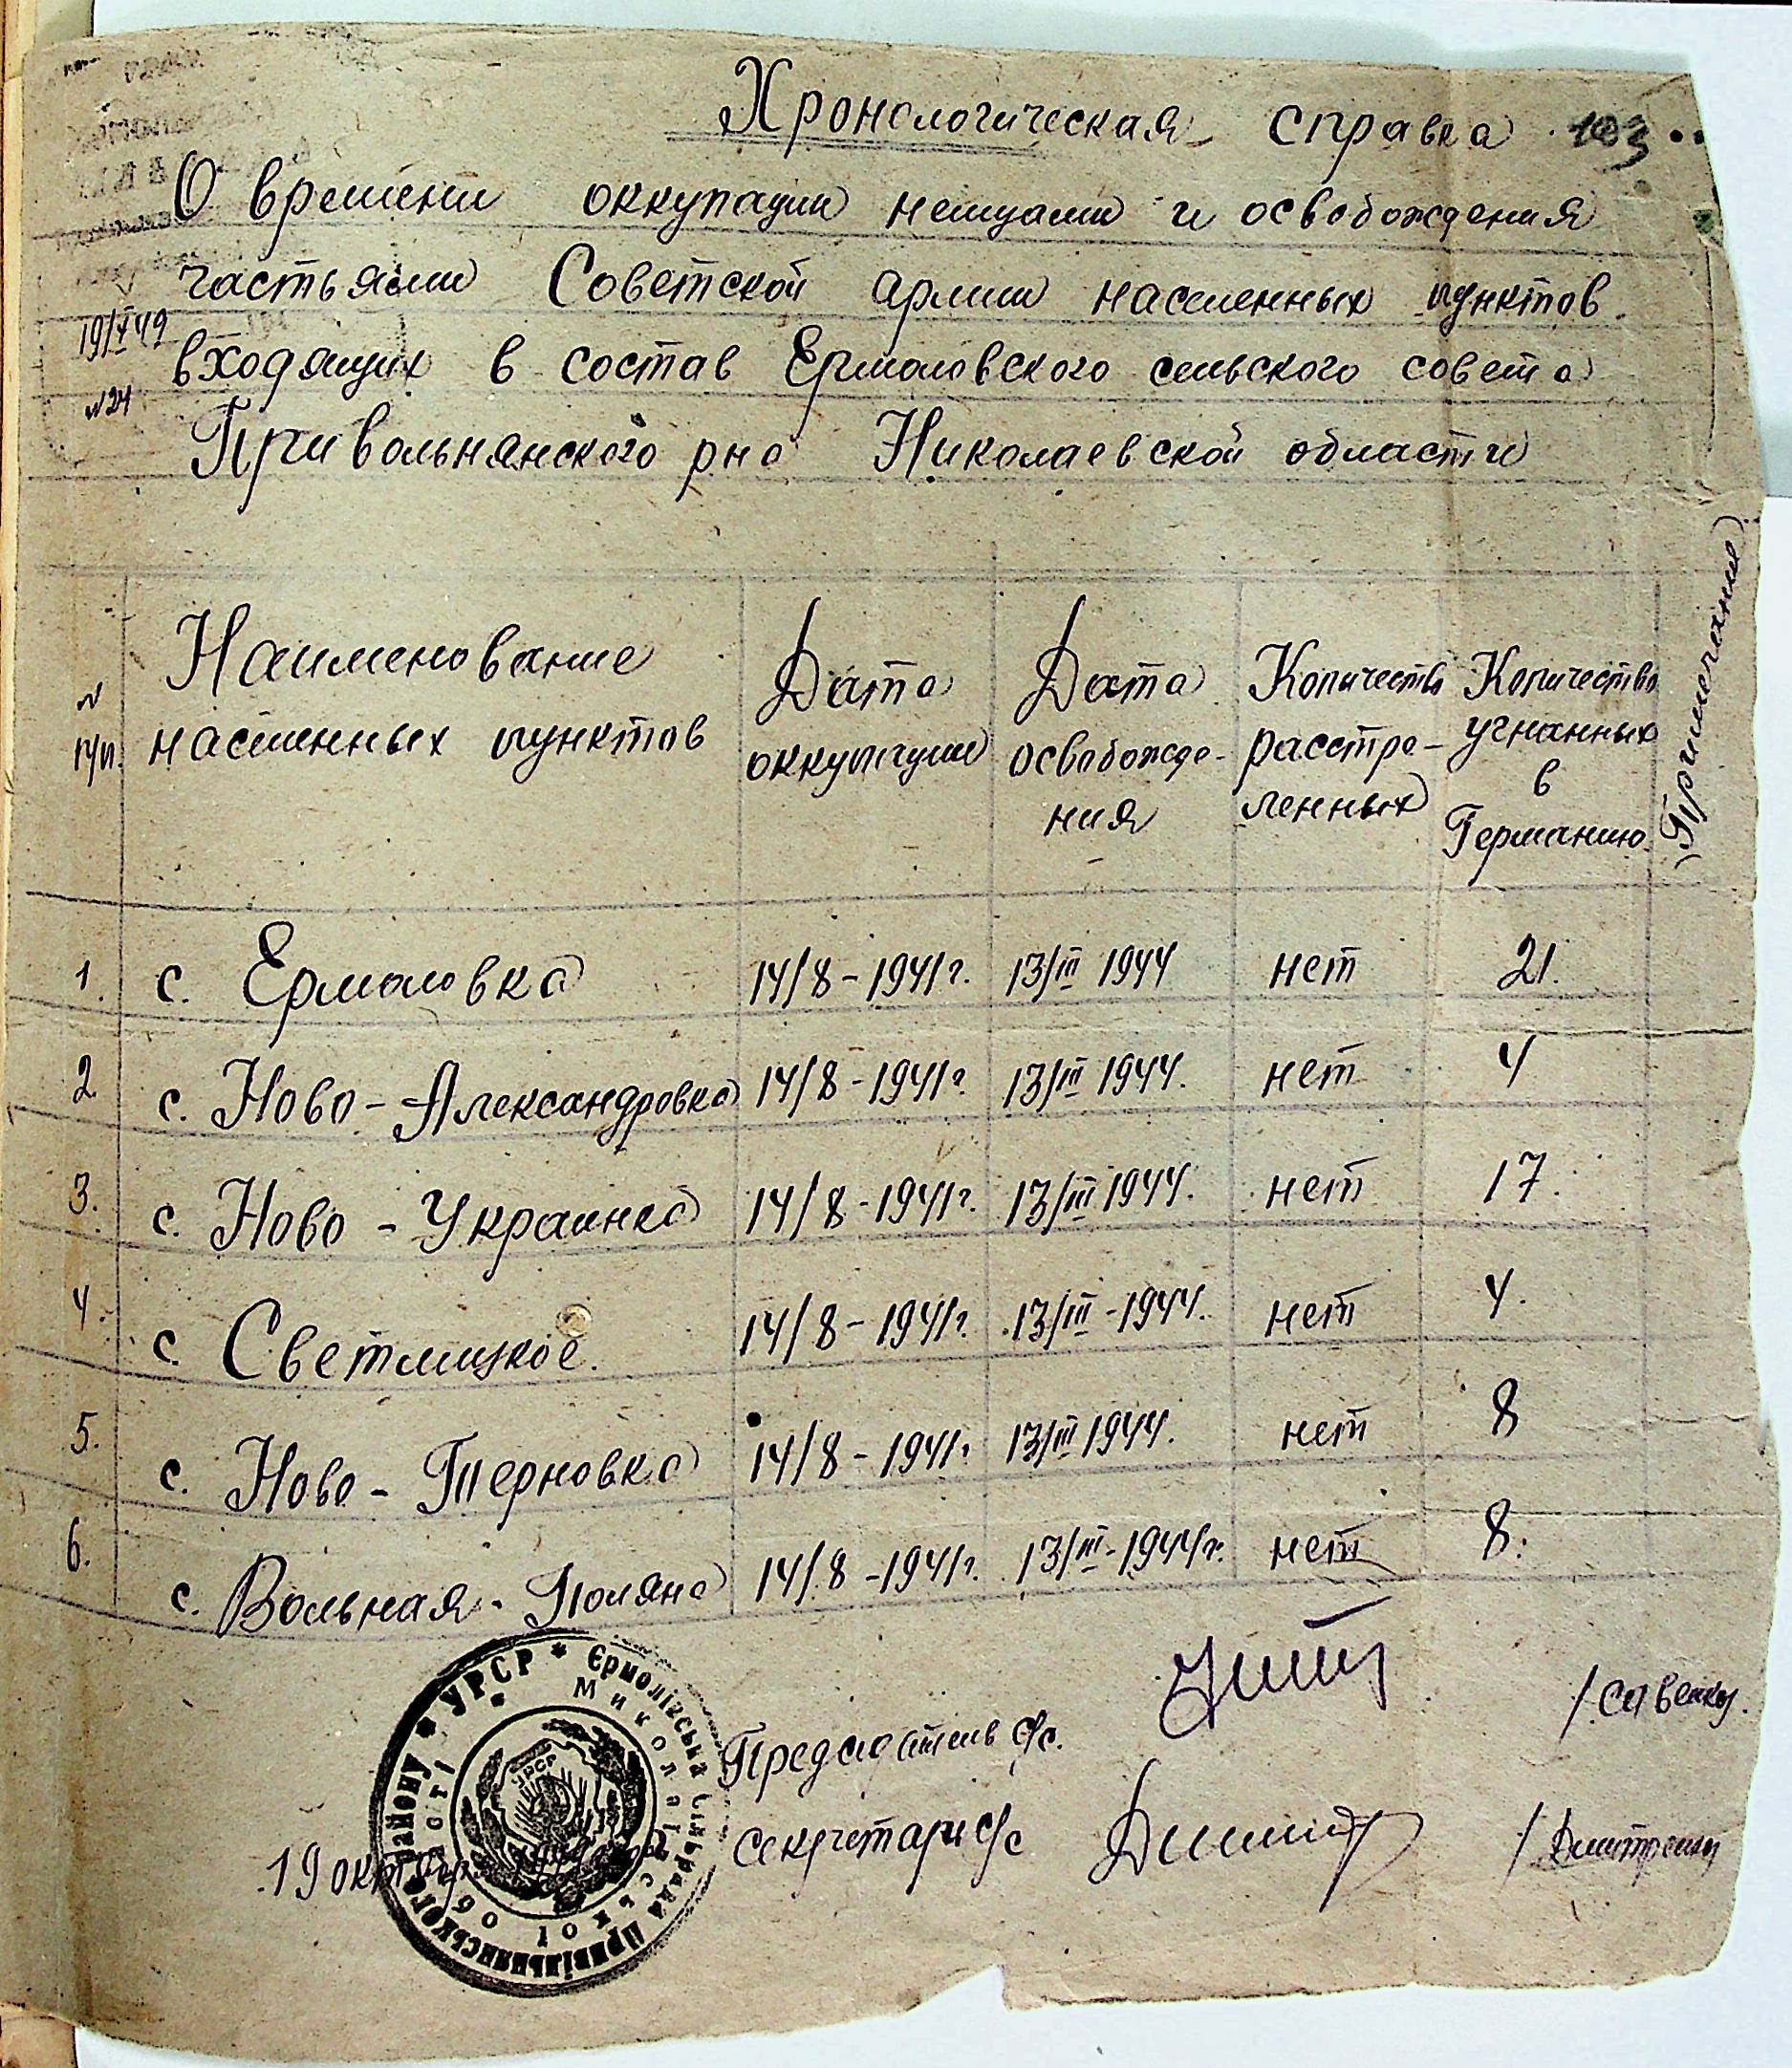 Хронологическая справка 103
О времени оккупации немцами и освобождения
частьями Советской армии населенных пунктов
19/X 49
входящих в состав Ермоловского сельского совета
№24
Привольнянского рна Николаевской области
№ п/п. Наименование населенных пунктов Дата оккупации Дата освобожде-ния Количество расстре-ленных Количество угнанных в Германию Примечание
1. с. Ермоловка 14/8-1941г. 13/III 1944 нет 21.
2 с. Ново-Александровка 14/8-1941г. 13/III 1944. нет 4
3. с. Ново-Украинка 14/8-1941г. 13/III 1944. нет 17.
4. с. Светлицкое. 14/8-1941г. 13/III-1944. нет 4.
5. с. Ново-Терновка 14/8-1941г 13/III 1944. нет 8
6. с. Вольная-Поляна 14/8-1941г. 13/III-1944г. нет 8.
УРСР * Єрмолівська сільрада Привільнянського району *
Миколаївської області
УРСР
Председатель с/с. /Савенко/.
Секретарь с/с /Дмитренко/
19 октября